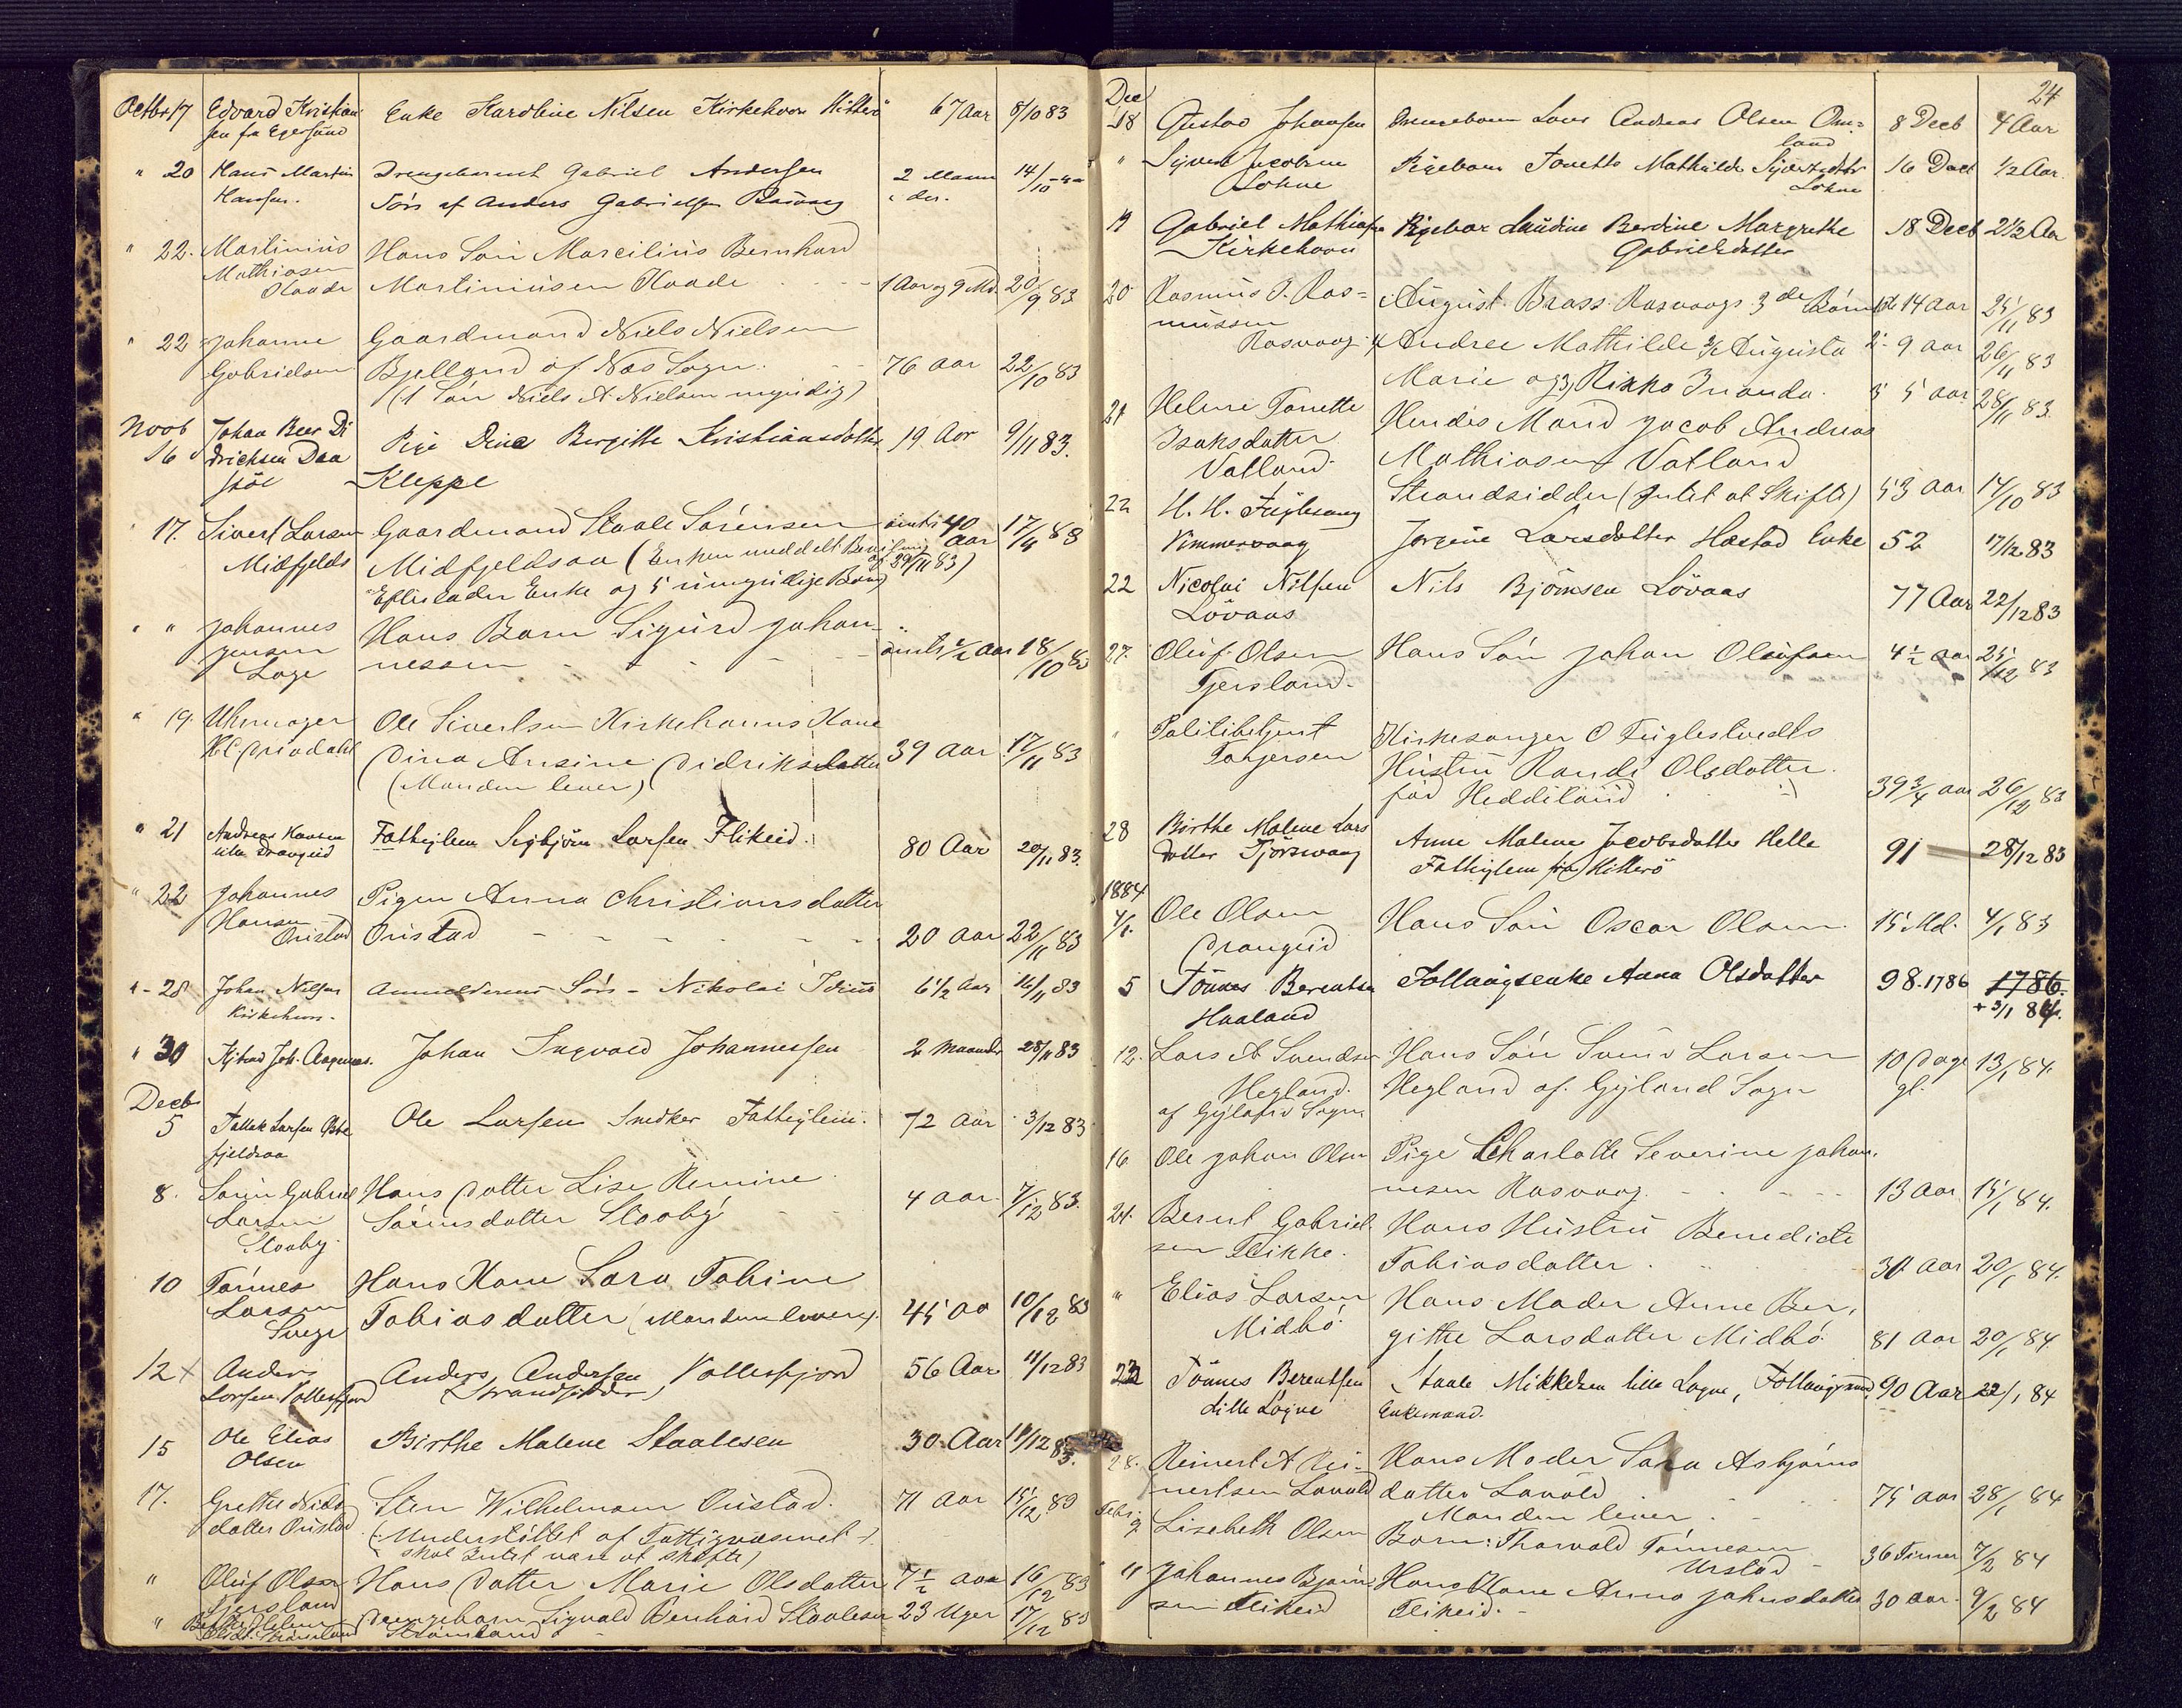 Octbr 17 Edvard Kristian Enke Karoline Nilsen Kirkehavn Hitterö 67 Aar 8/10 83
sen fra Egersund
" 20 Hans Martin Drengebarnet Gabriel Andersen 2 Maan 14/10
Hansen. Sön af Anders Gabrielsen Rasvaag der.
" 22. Martinius Hans Sön Marcilius Bernhard
Mathiasen Martiniusen Haade 1 Aar og 9 Md. 20/9 83
Haade
" 22 Johanne Gaardmand Niels Nielsen
Gabrielsen Bjelland af Næs Sogn. 76 aar 22/10 83
(1 Sön Niels A. Nielsen myndig)
Novb Johan Beer Di Pige Dina Bergitte Kristiansdatter 19 Aar 9/11 83.
16 drichsen Daa Kleppe
17. Sivert Larsen Gaardmand Staale Sörensen omtr 40 aar 17/9 83
Midfjelds Midfjeldsaa (Enken meddelt Bevilling af 29/11 83)
Efterlader Enke og 5 umyndige Børn
" " Johannes Hans Barn Sigurd Johan-
Jensen nessen omtr 1/2 aar 18/10 83
Lage
" 19. Uhrmager Ole Sivertsen Kirkehavns Kone
Dina Ansine Didriksdatter 39 aar 17/11 83
(Manden lever)
" 21 Andreas Hansen Fattiglem Sigbjörn Larsen Flikeid. 80 Aar 20/11 83.
lille Drangeid
" 22 Johannes Pigen Anna Christiansdatter
Hansen Øuistad 20 aar 22/11 83
Ouistad
" - 28 Johan Nilsen Anmelderens Sön - Nikolai 6 1/2 Aar 16/11 83
Kirkehavn.
" 30 Johan Ingvald Johannessen 2 Maaneder 28/11 83
Decb
5 Tallak Larsen Ole Larsen Snedker Fattiglem. 72 Aar 3/12 83
fjeldsaa
8. Sörin Gabriel Hans Datter Lise Remine
Larsen Sörensdatter Stooby 4 aar 7/12 83.
Stooby
10 Tönnes Hans Kone Sara Tobine
Larsen Tobiasdatter (Manden lever). 45 aa 10/12 83
Svege
12 x Anders Anders Andersen Vollesfjord 56 Aar 11/12 83
Larsen Vollesfjord (Strandsidder)
15 Ole Elias Birthe Malene Staalesen 30 Aar 14/12 83.
Olsen
17. Grethe Nils Sten Wilhelmsen Ouistad. 71 aar 15/12. 83
datter Ouistad (Understöttet af Fattigvæsenet -
skal Intet være at skifte)
" Oluf Olsen Hans Datter Marie Olsdatter 7 1/2 aar 16/12 83
Tjersland
" Drengebarn Sigvald Bernhard Staalesen 23 Uger 17/12 83
Strömland
24
Dec
18 Gustav Johansen Drengebarn Lars Andreas Olsen Om= 8 Decb 4 Aar
land
" Syvert Jacobsen Pigebarn Tonette Mathilde Syvertsdtr 16 Decb 1/2 Aar.
Lohne Lohne
19 Gabriel Mathiasen Pigebar Laudine Berdine Margrethe 18 Decb 2 1/2 Aar
Kirkehavn Gabrielsdatter
20 Rasmus J. Ras= August Brass Rasvaags 3de Börn 1st 14 aar 25/11 83
mussen
Rasvaag 1/ Andrea Mathilde 2/ Augusta 2. 9 aar 26/11 83
Marie og 3/ Rikka Iranda. 3 5 aar 28/11 83.
21 Helene Tonette Hendes Mand Jacob Andreas
Isaksdatter Mathiasen Vatland
Vatland. Strandsidder (Intet at Skifte) 53 aar 14/10 83
22 H. H. Fuglevaag Jorgine Larsdatter Hæstad Enke 52 17/12 83
Vimmervaag
22 Nicolai Nilsen Nils Björnsen Lövaas 77 Aar 22/12 83
Lövaas
27. Oluf Olsen Hans Sön Johan Olufsen 4 1/2 aar 25/12 83
Tjersland.
" Politibetjent Kirkesanger O Fuglestvedts
Torgersen Hustru Randi Olsdatter.
föd Heddeland 39 3/4 aar 26/12 83
28 Birthe Malene Lars Anne Malene Jacobsdatter Helle 91 28/12 83
datter Tjörsvaag Fattiglem fra Hitterö
1884
4/1. Ole Olsen Hans Sön Oscar Olsen 15 Md. 4/1 83
Drangeid
5 Tönnes Berentsen Follaugsenke Anna Olsdatter 98. 1786 1786.
Haaland + 3/1 84.
12. Lars A Svendsen Hans Sön Svend Larsen 10 Dage 13/1 84.
Hegland. Hegland af Gyland Sogn gl.
af Gyland Sogn
16. Ole Johan Olsen Pige Charlotte Severine Johan,
nesen Rasvaag 13 aar 15/1 84.
21. Bernt Gabriel Hans Hustru Benedicte
sen Flikke. Tobiasdatter. 30 aar 20/1 84.
" Elias Larsen Hans Moder Anne Ber,
Midbö githe Larsdatter Midbö 81 aar 20/1 84.
23 Tönnes Berentsen Staale Mikkelsen lille Lögne, Follaugsmand 90 Aar 22/1 84
Lille Lögne Enkemand.
28. Reinert A Rei= Hans Moder Sara Asbjörns
nertsen Lavold datter Lavold 75 aar 28/1 84
Manden lever.
Febr. 9 Lisebeth Olsen Barn: Thorvald Tönnesen 36 Timer 7/2 84
Urstad
11 Johannes Bjørn Hans Kone Anna Johnsdatter 30 aar. 9/2 84
sen Flikeid Flikeid.